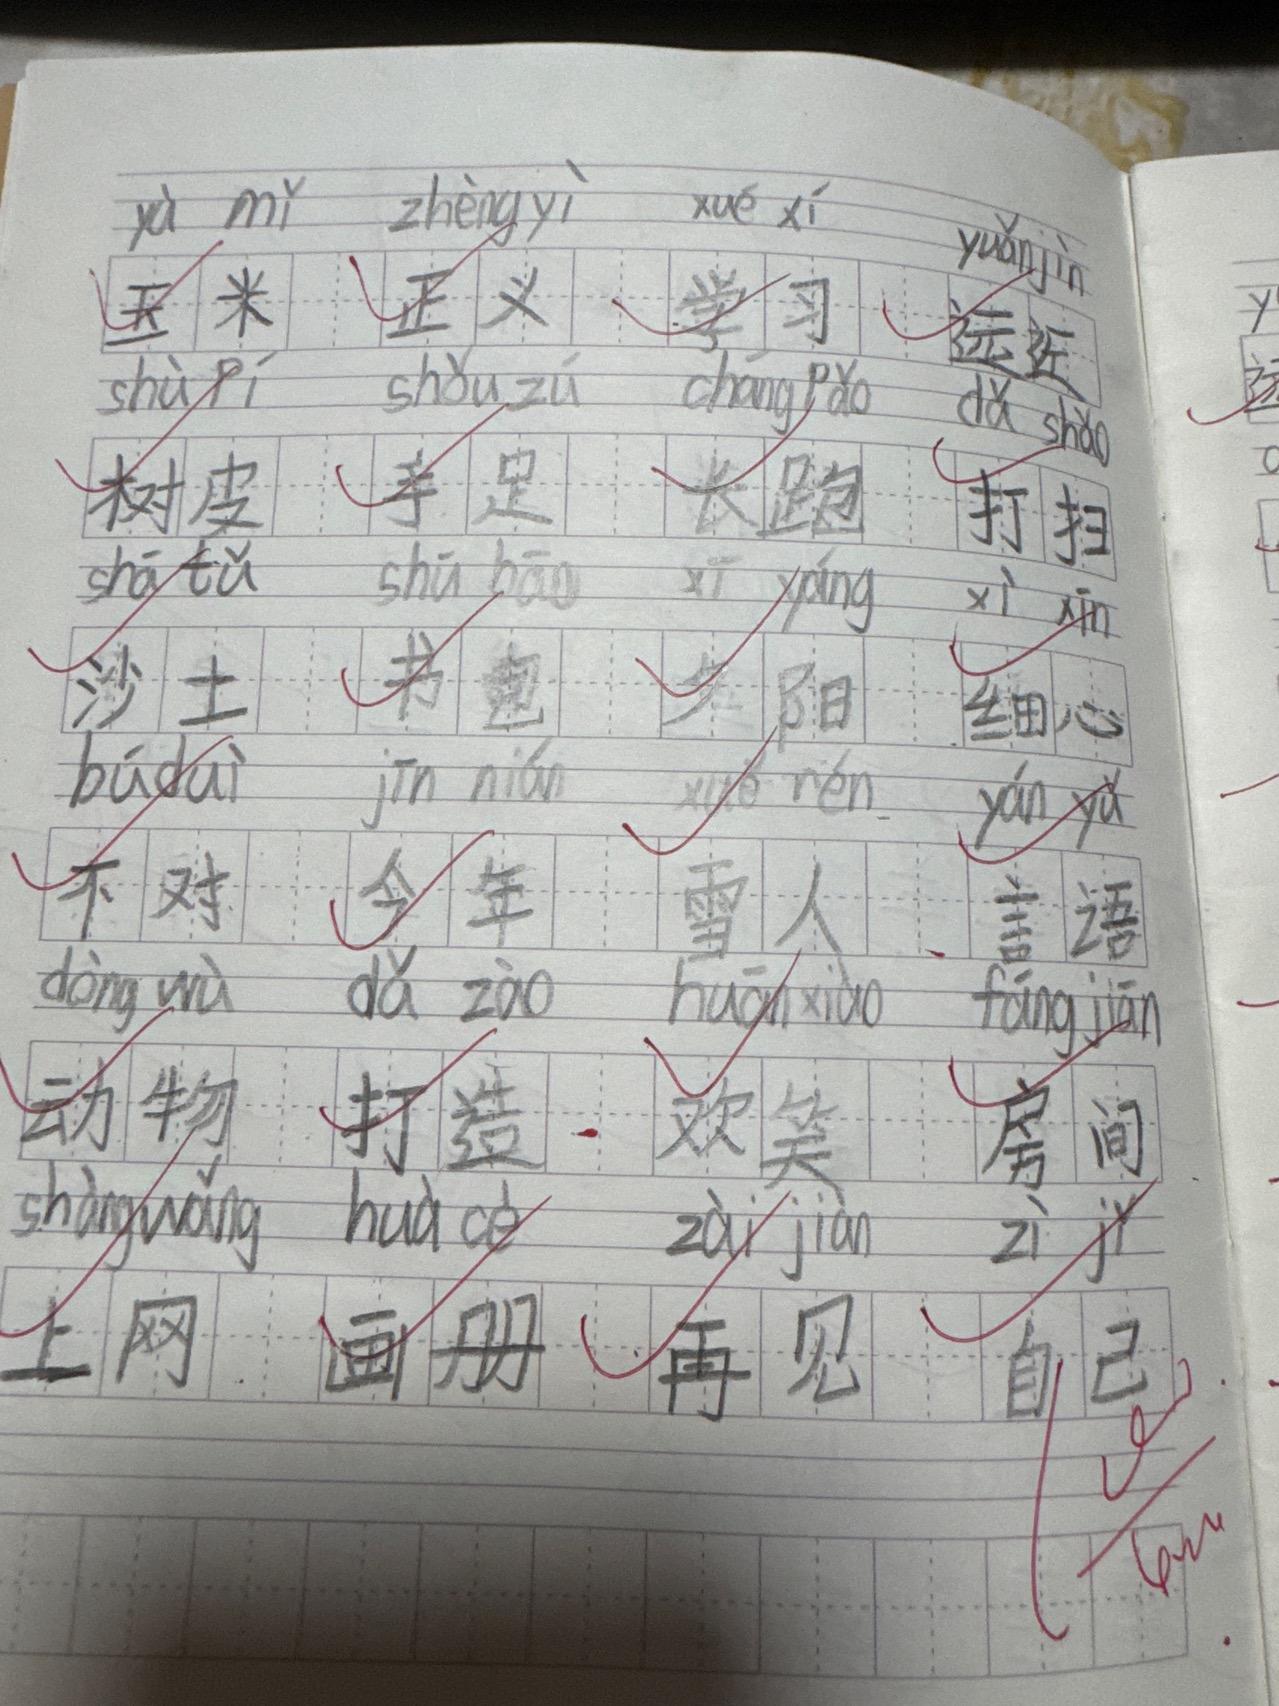 yù mǐ zhèng yì xué xí yuǎn jìn
玉米 正义 学习 远近
shù pí shǒu zú cháng pǎo dǎ shǎo
树皮 手足 长跑 打扫
shā tǔ shū bāo xī yáng xì xīn
沙土 书包 夕阳 细心
bú duì jīn nián xuě rén yán yǔ
不对 今年 雪人 言语
dòng wù dǎ zào huān xiào fáng jiān
动物 打造 欢笑 房间
shàng wǎng huà cè zài jiàn zì jǐ
上网 画册 再见 自己